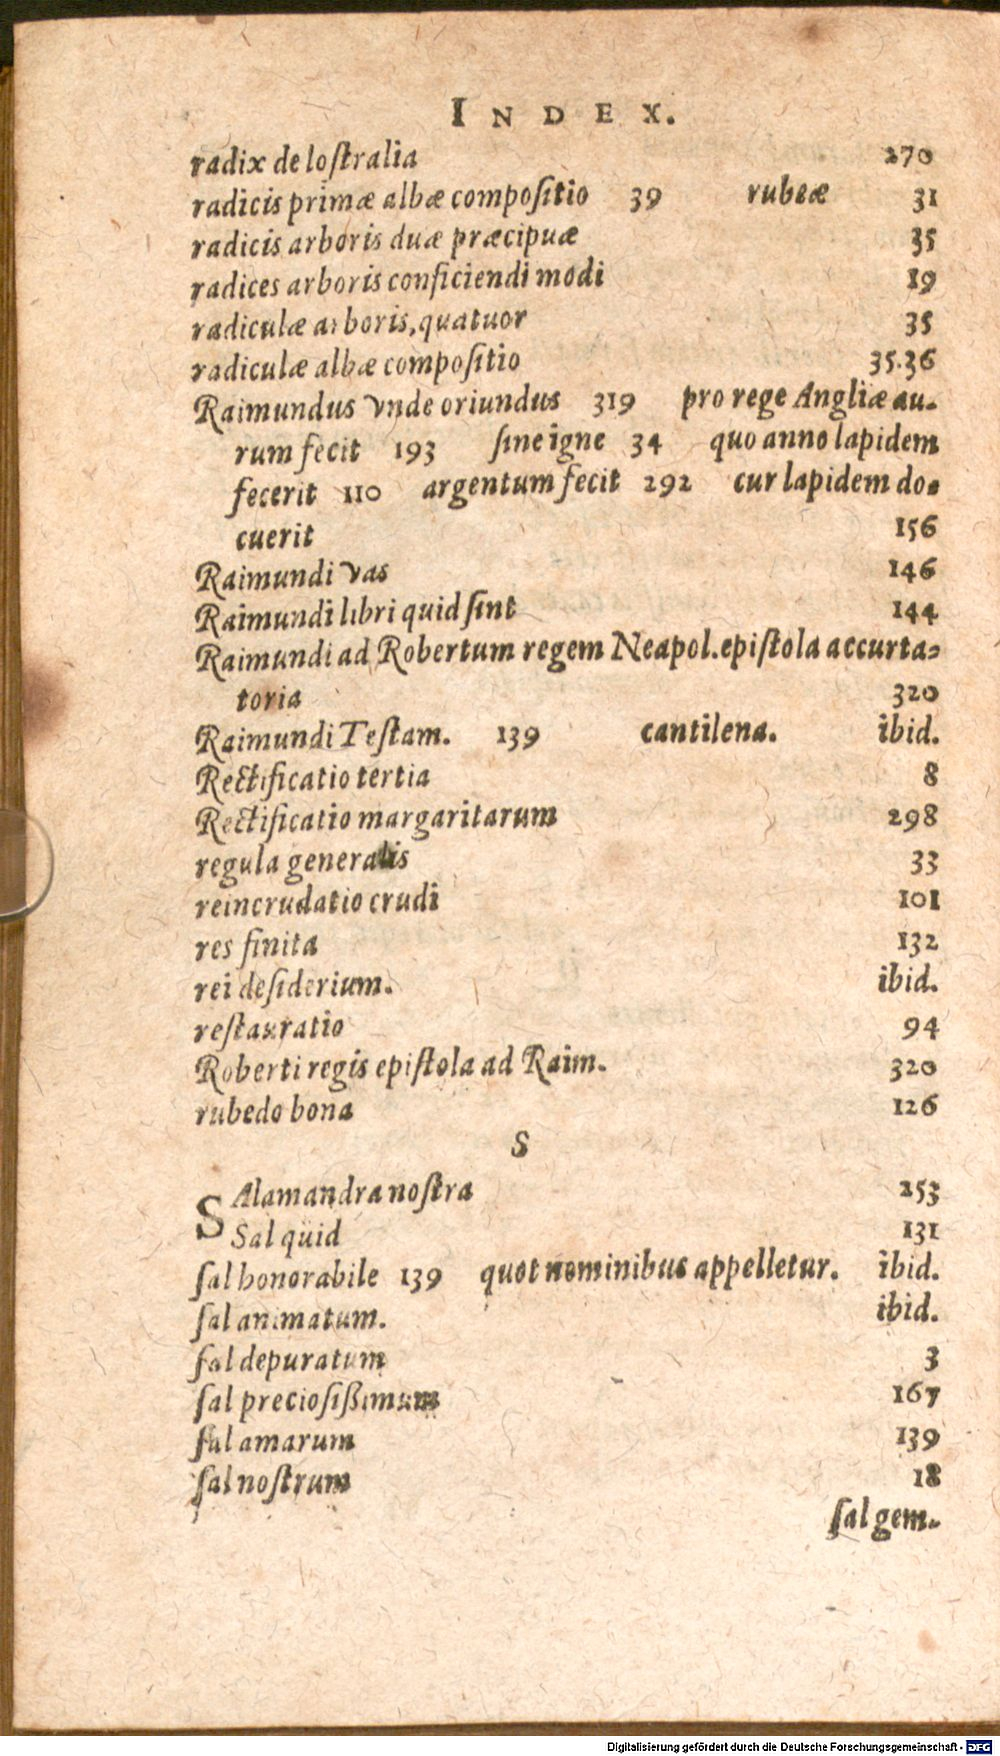 INDEX.
radix de lostralia 270
radicis primæ albæ compoſitio 39 rubeæ 31
radicis arboris duæ præcipuæ 35
radices arboris conficiendi modi 19
radiculæ arboris, quatuor 35
radiculæ albæ compoſitio 35.36
Raimundus vnde oriundus 319 pro rege Angliæ au-
rum fecit 193 ſine igne 34 quo anno lapidem
fecerit 110 argentum fecit 292 cur lapidem do-
cuerit 156
Raimundi vas 146
Raimundi libri quid ſint 144
Raimundi ad Robertum regem Neapol. epiſtola accurta-
toria 320
Raimundi Teſtam. 139 cantilena. ibid.
Rectificatio tertia 8
Rectificatio margaritarum 298
regula generalis 33
reincrudatio crudi 101
res finita 132
rei deſiderium. ibid.
reſtauratio 94
Roberti regis epiſtola ad Raim. 320
rubedo bona 126
S
SAlamandra noſtra 253
Sal quid 131
ſal honorabile 139 quot nominibus appelletur. ibid.
ſal animatum. ibid.
ſal depuratum 3
ſal precioſißimum 167
ſal amarum 139
ſal noſtrum 18
ſal gem-
Digitalisierung gefördert durch die Deutsche Forschungsgemeinschaft - DFG